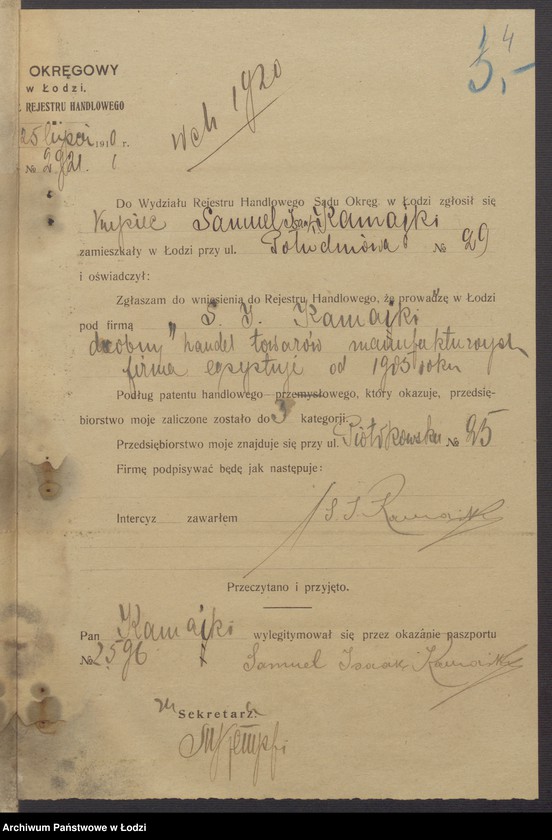 4
5,-
OKRĘGOWY
w Łodzi.
REJESTRU HANDLOWEGO
25 1910 r.
№ 2921.
wch 1920
Do Wydziału Rejestru Handlowego Sądu Okręg. w Łodzi zgłosił się
Kupiec Samuel Kamajki
zamieszkały w Łodzi przy ul. Południowa № 29
i oświadczył:
Zgłaszam do wniesienia do Rejestru Handlowego, że prowadzę w Łodzi
pod firmą „ S. I. Kamajki
drobny handel towarów manufakturowych
firma egsystuje od 1905 roku
Podług patentu handlowego przemysłowego, który okazuje, przedsię-
biorstwo moje zaliczone zostało do 3 kategorji.
Przedsiębiorstwo moje znajduje się przy ul. Piotrkowska № 25
Firmę podpisywać będę jak następuje:
Intercyz zawarłem S. I. Kamajki
Przeczytano i przyjęto.
Pan Kamajki wylegitymował się przez okazanie paszportu
№ 2596 Samuel Isaak Kamajki
Sekretarz:
Archiwum Państwowe w Łodzi